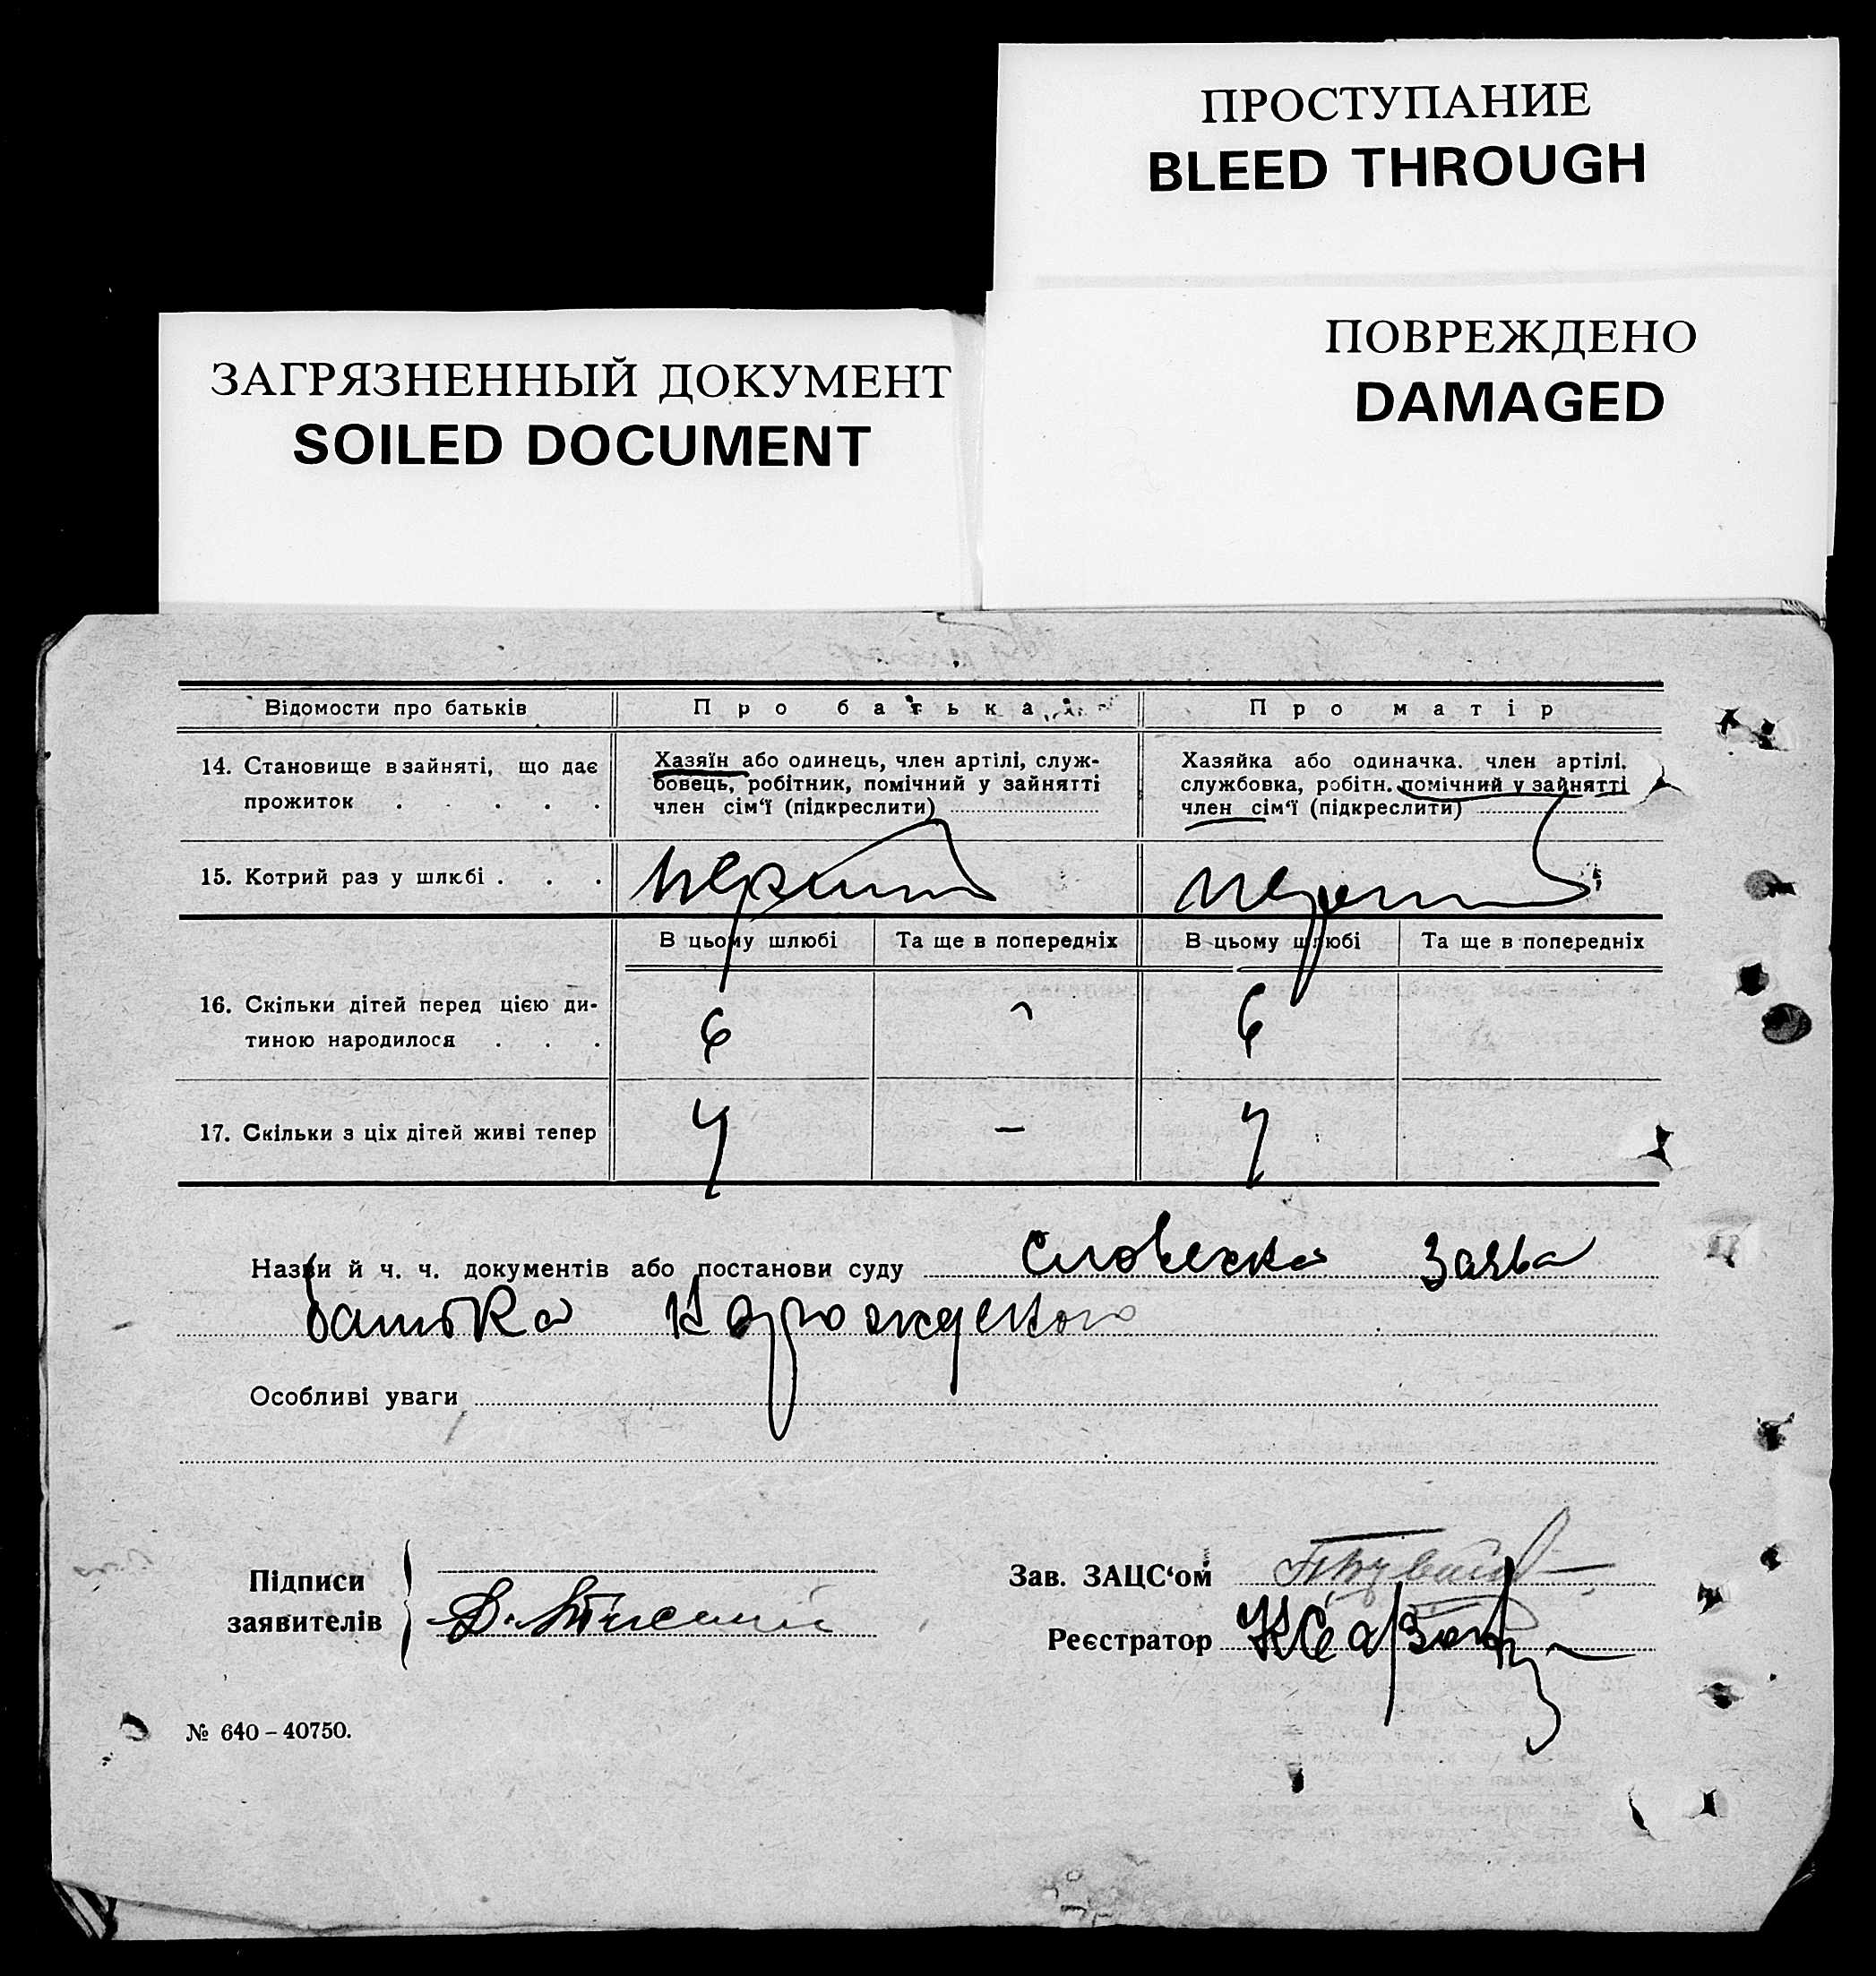 ПРОСТУПАНИЕ
BLEED THROUGH
ПОВРЕЖДЕНО
DAMAGED
ЗАГРЯЗНЕННЫЙ ДОКУМЕНТ
SOILED DOCUMENT
Відомости про батьків
Про батька
Про матір
14. Становище в зайняті, що дає
прожиток
Хазяїн або одинець, член артілі, служ-
бовець, робітник, помічний у зайнятті
член сім'ї (підкреслити)
Хазяйка або одиначка. член артілі.
службовка, робітн. помічний у зайнятті
член сім'ї (підкреслити)
15. Котрий раз у шлюбі
В цьому шлюбі
Та ще в попередніх
В цьому шлюбі
Та ще в попередніх
16. Скільки дітей перед цією ди-
тиною народилося
6
6
17. Скільки з ціх дітей живі тепер
4
–
4
Назви й ч. ч. документів або постанови суду Словеска заява
батька
Особливі уваги
Підписи
заявителів
Зав. ЗАЦС'ом
Реєстратор
№ 640 – 40750.